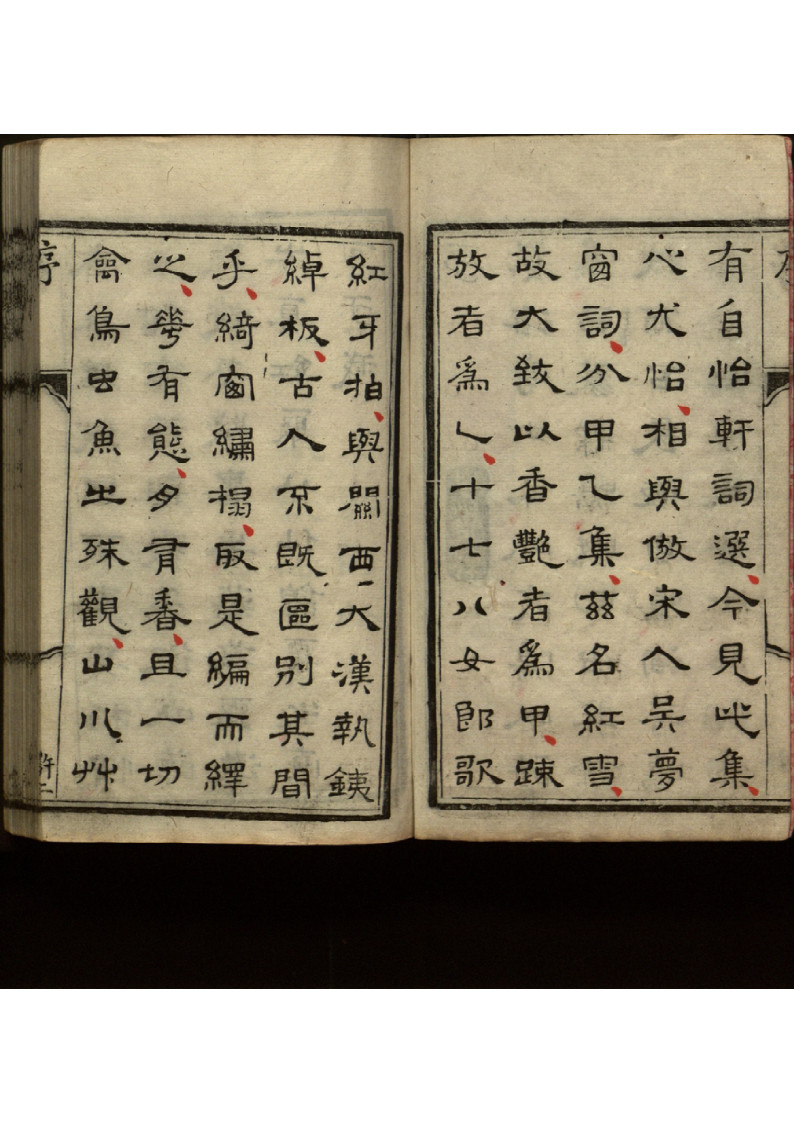 有自怡軒詞選今見此集
心尤怡相與倣宋人吳夢
窗詞分甲乙集茲名紅雪
故大致以香艷者爲甲踈
放者爲乙十七八女郎歌
紅牙拍與關西大漢執銕
綽板古人不既區別其間
乎綺窗繡榻取是編而繹
之華有態夕有香且一切
禽鳥虫魚出殊觀山川艸
序